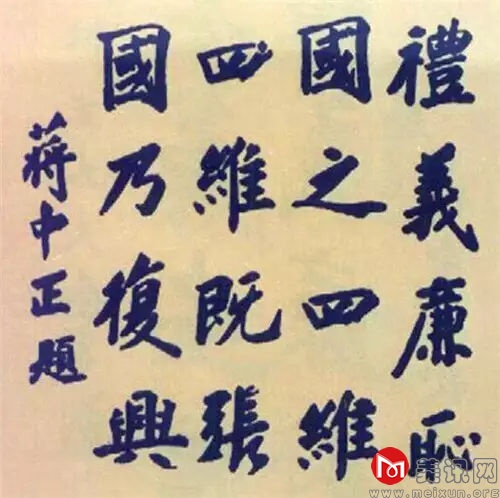 禮義廉恥
國之四維
四維既張
國乃復興
蔣中正題
美讯网
www.meixun.org